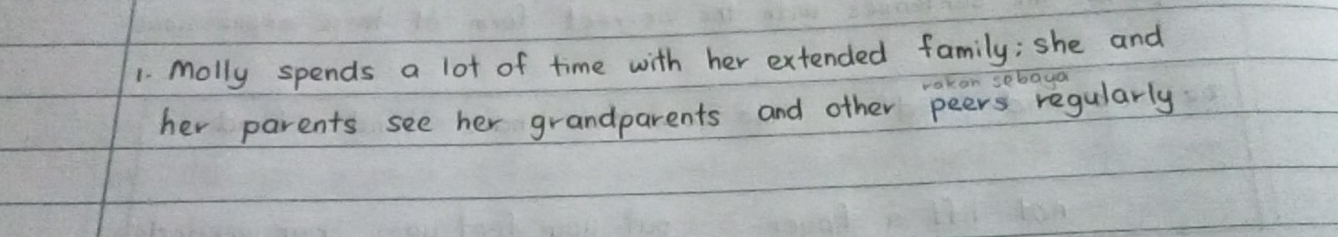 1. Molly spends a lot of time with her extended family; she and
rakan sebaya
her parents see her grandparents and other peers regularly